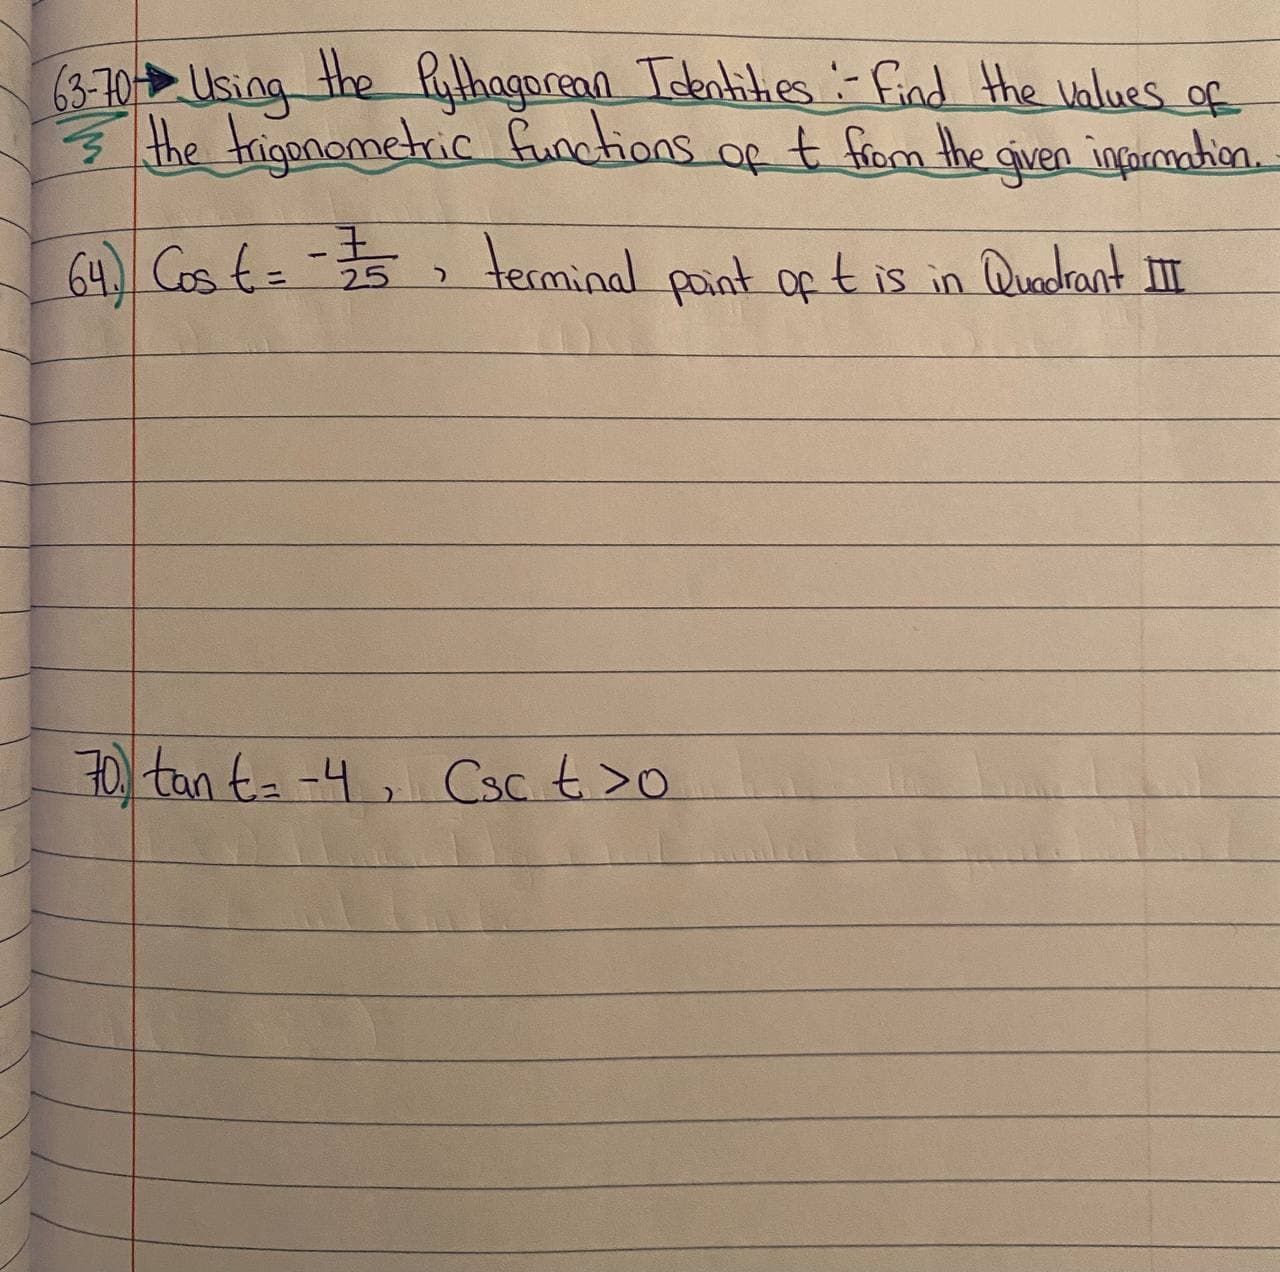 63-70→ Using the Pythagorean Identities :- Find the values of
the trigonometric functions of t from the given information.
64.) Cos t = -7/25 , terminal point of t is in Quadrant III
70.) tan t = -4 , Csc t >0